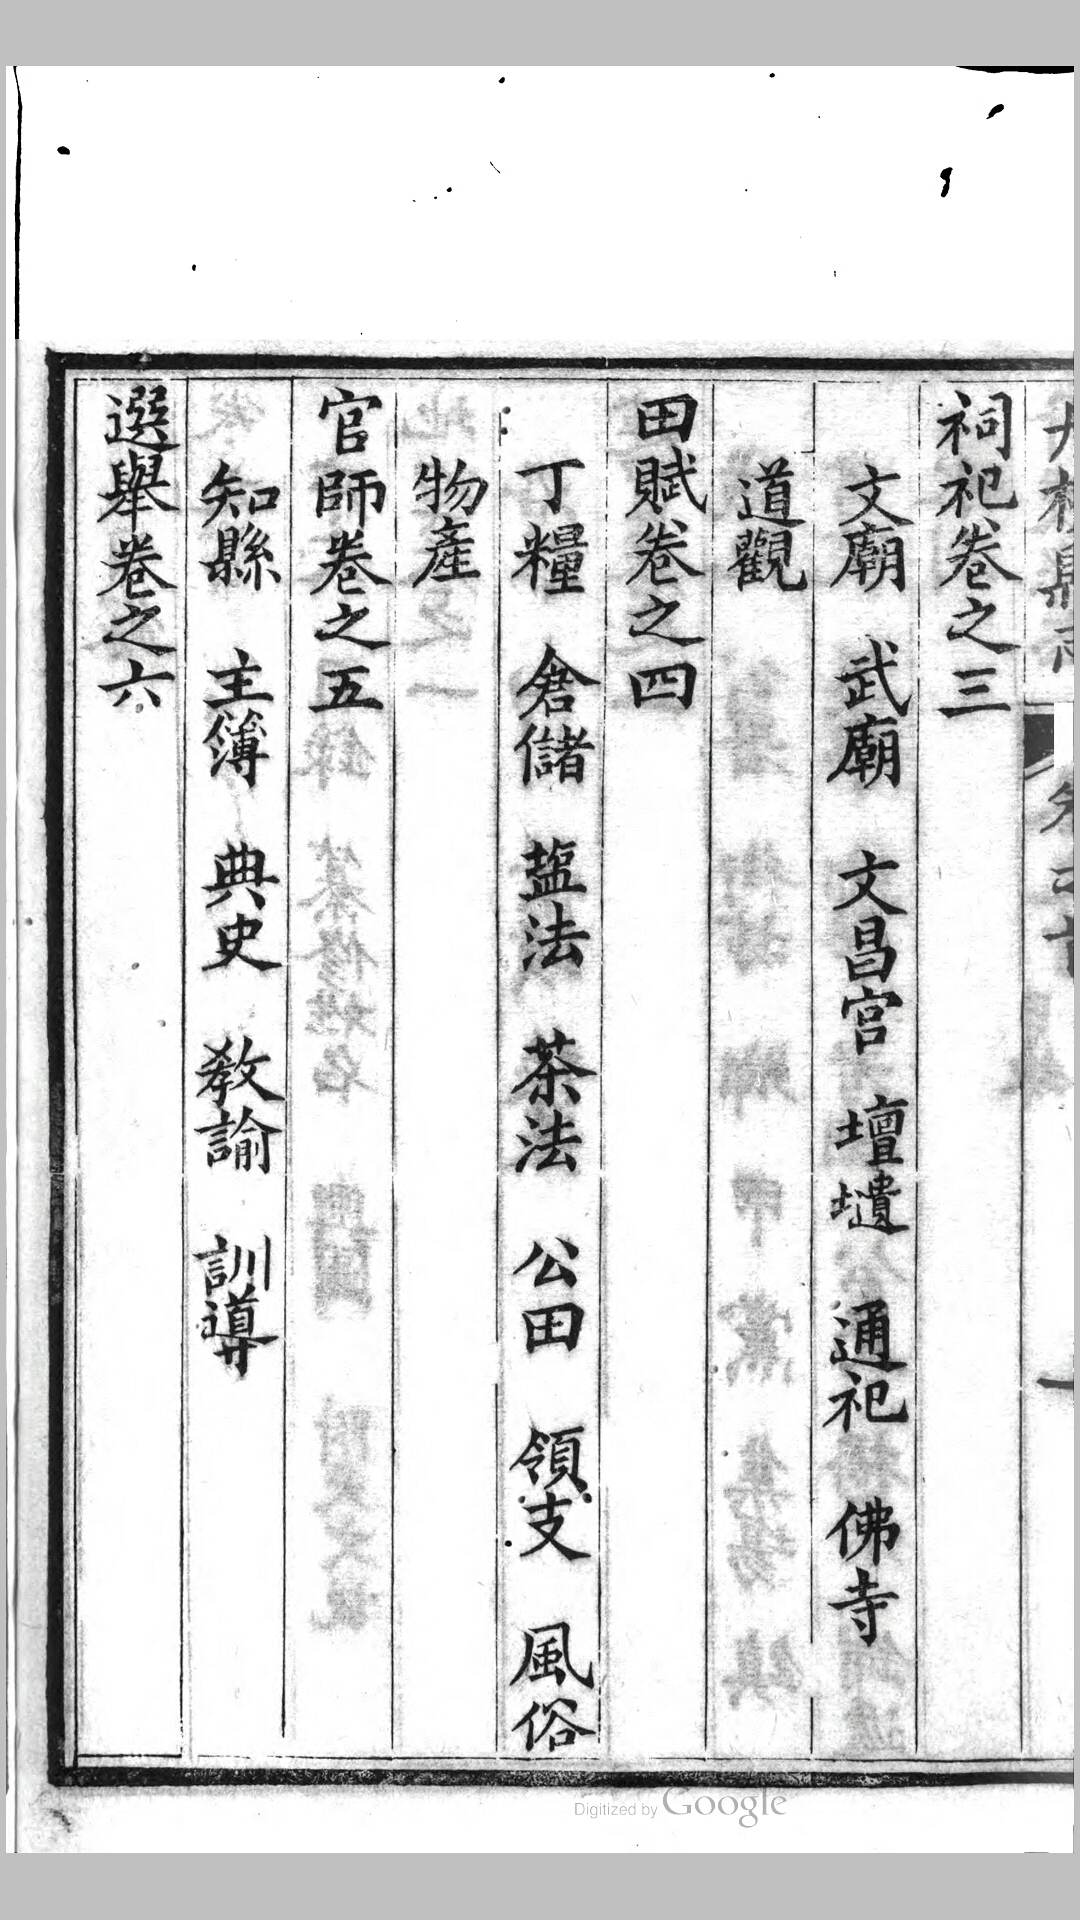 祠祀卷之三
文廟 武廟 文昌宮 壇壝 通祀 佛寺
道觀
田賦卷之四
丁糧 倉儲 塩法 茶法 公田 領支 風俗
物產
官師卷之五
知縣 主簿 典史 教諭 訓導
選舉卷之六
Digitized by Google